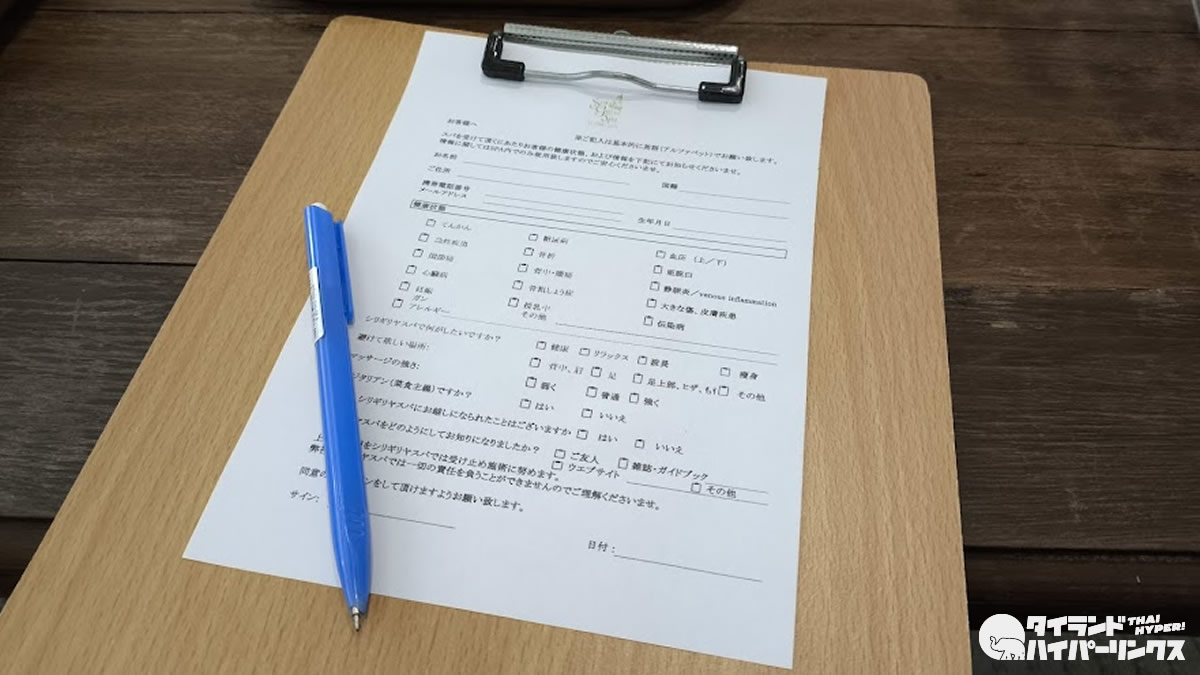 お客様へ
※ご記入は基本的に英語(アルファベット)でお願い致します。
スパを受けて頂くにあたりお客様の健康状態、および情報を下記にてお知らせくださいませ。
情報に関してはSPA内でのみ使用致しますのでご安心くださいませ。
お名前 国籍
ご住所
携帯電話番号
メールアドレス 生年月日
健康状態
てんかん 糖尿病 血圧 (上/下)
骨折
背中・腰痛 静脈炎/venous inflammation
心臓病 骨粗しょう症 大きな傷、皮膚疾患
妊娠 授乳中 伝染病
ガン その他
アレルギー
シリギリヤスパで何がしたいですか? 健康 リラックス 痩身
避けて欲しい場所: 背中、肩 足 足上部、ヒザ、もも その他
マッサージの強さ: 弱く 普通 強く
ジタリアン(菜食主義)ですか? はい いいえ
シリギリヤスパにお越しになられたことはございますか はい いいえ
スパをどのようにしてお知りになりましたか? ご友人 雑誌・ガイドブック
ウエブサイト その他
をシリギリヤスパでは受け止め施術に努めます。
弊社 ヤスパでは一切の責任を負うことができませんのでご理解くださいませ。
同意の ンをして頂けますようお願い致します。
サイン: 日付:
タイランド THAI HYPER!
ハイパーリンクス